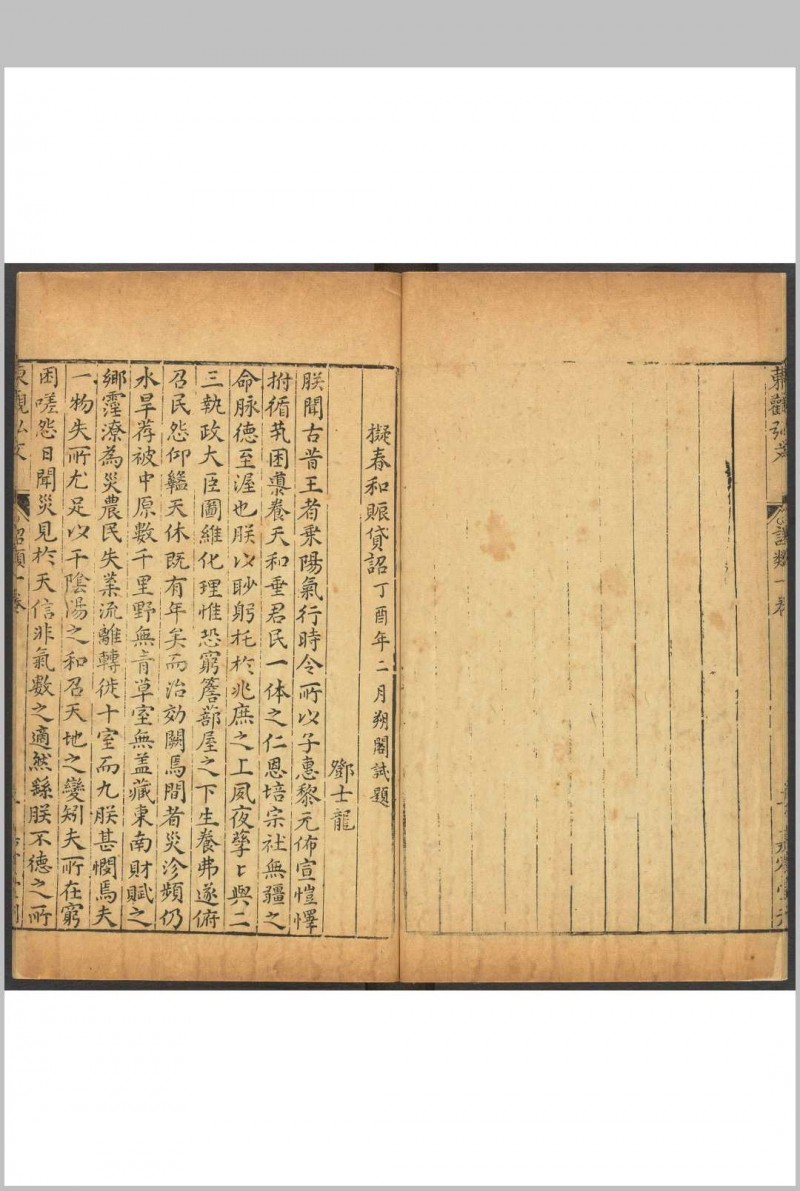 東觀弘文
詔類一卷
擬春和賑貸詔丁酉年二月朔閣試題
鄧士龍
朕聞古昔王者乗陽氣行時令所以子惠黎元佈宣愷懌
拊循煢困𡙇養天和垂君民一体之仁恩培宗社無疆之
命脉德至渥也朕以眇躬托於兆庶之上夙夜孳〻與二
三執政大臣圖維化理惟恐窮簷蔀屋之下生養弗遂俯
召民怨仰盭天休既有年矣而治効闕焉間者災沴頻仍
水旱荐被中原數千里野無青草室無盖藏東南財賦之
鄉霪潦為災農民失業流離轉徙十室而九朕甚憫焉夫
一物失所尤足以干陰陽之和召天地之變矧夫所在窮
困嗟怨日聞災見於天信非氣數之適然繇朕不德之所
東觀弘文
詔類一卷